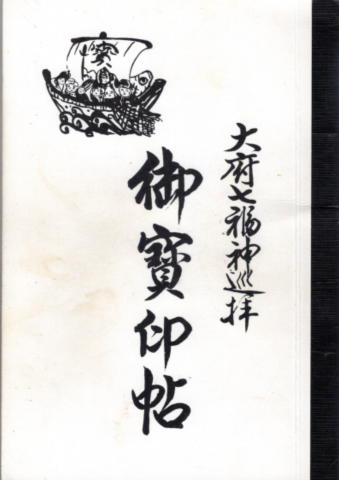 大府七福神巡拝
御寶印帖
寳